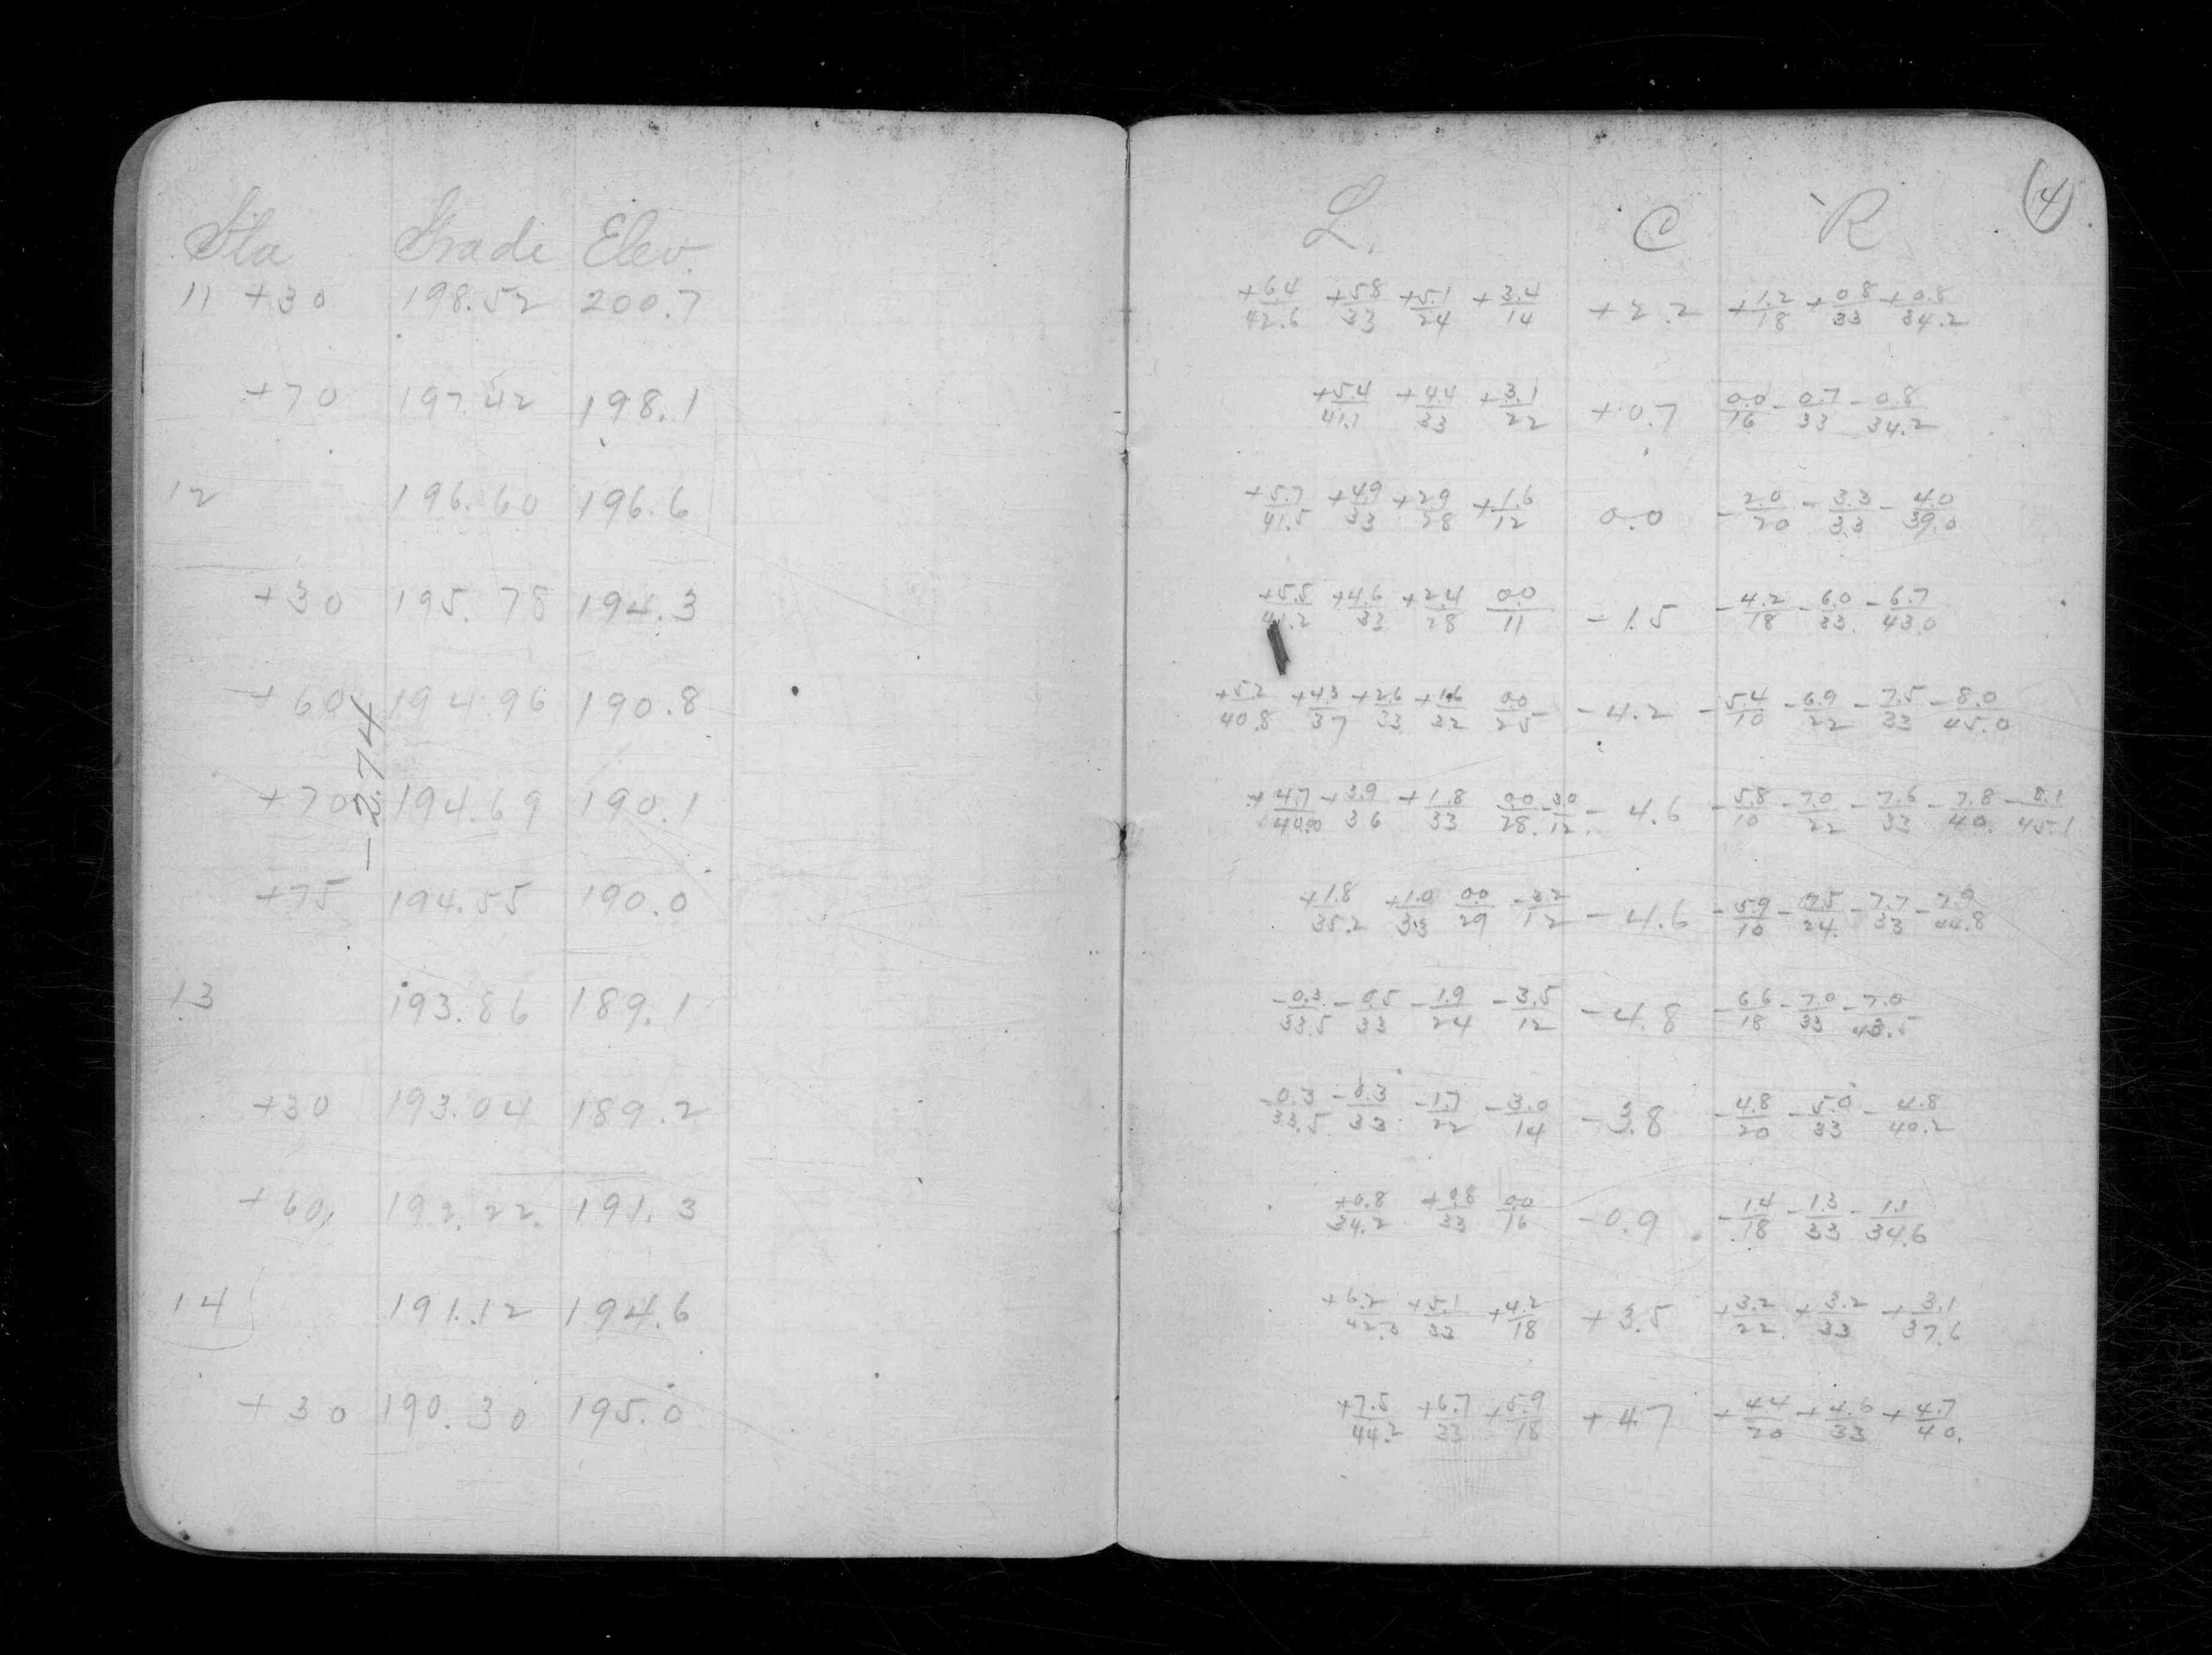 Sta Grade Elev.
11 +30 198.52 200.7
+70 197.42 198.1
12 196.60 196.6
+30 195.78 194.3
+60 194.96 190.8
-2.74
+70 194.69 190.1
+75 194.55 190.0
13 193.86 189.1
+30 193.04 189.2
+60 192.22 191.3
14 191.12 194.6
+30 190.30 195.0
4
L. C R
+6.4/42.6 +5.8/33 +5.1/24 +3.4/14 +2.2 +1.2/18 +0.8/33 +0.8/34.2
+5.4/41.1 +4.4/33 +3.1/22 +0.7 0.0/16 -0.7/33 -0.8/34.2
+5.7/41.5 +4.9/33 +2.9/28 +1.6/12 0.0 -2.0/20 -3.3/33 -4.0/39.0
+5.5/41.2 +4.6/33 +2.4/28 0.0/11 -1.5 -4.2/18 -6.0/33. -6.7/43.0
+5.2/40.8 +4.3/37 +2.6/33 +1.6/32 0.0/25 -4.2 -5.4/10 -6.9/22 -7.5/33 -8.0/45.0
+4.7/40.0 +3.9/36 +1.8/33 0.0/28. -3.0/12. -4.6 -5.8/10 -7.0/22 -7.6/33 -7.8/40. -8.1/45.1
+1.8/35.2 +1.0/33 0.0/29 -3.2/12 -4.6 -5.9/10 -7.5/24. -7.7/33 -7.9/44.8
-0.3/33.5 -0.5/33 -1.9/24 -3.5/12 -4.8 -6.6/18 -7.0/33 -7.0/43.5
-0.3/33.5 -0.3/33 -1.7/22 -3.0/14 -3.8 -4.8/20 -5.0/33 -4.8/40.2
+0.8/34.2 +0.8/33 0.0/16 -0.9 -1.4/18 -1.3/33 -1.1/34.6
+6.2/42.3 +5.1/33 +4.2/18 +3.5 +3.2/22. +3.2/33 +3.1/37.6
+7.5/44.2 +6.7/33 +5.9/18 +4.7 +4.4/20 +4.6/33 +4.7/40.